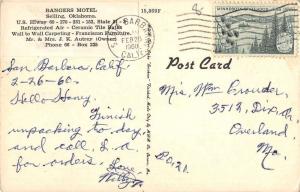 RANGERS MOTEL
Seiling, Oklahoma.
U.S. Hiway 60 - 270 - 281 - 183, State
Refrigerated Air - Ceramic Tile Baths
Wall to Wall Carpeting - Franciscan Furniture.
Mr. & Mrs. J. K. Autrey (Owner)
Phone 66 - Box 235
15,309F
SANTA BARBARA
FEB 26
1960
CALIF.
Post Card
San Barbara, Calif
2-26-60.
Hello Honey.
Finish
unpacking to day,
and call, L.A.
for orders.
Love,
Willy
Mrs, Wm
3513, Dix
Overland
Mo.